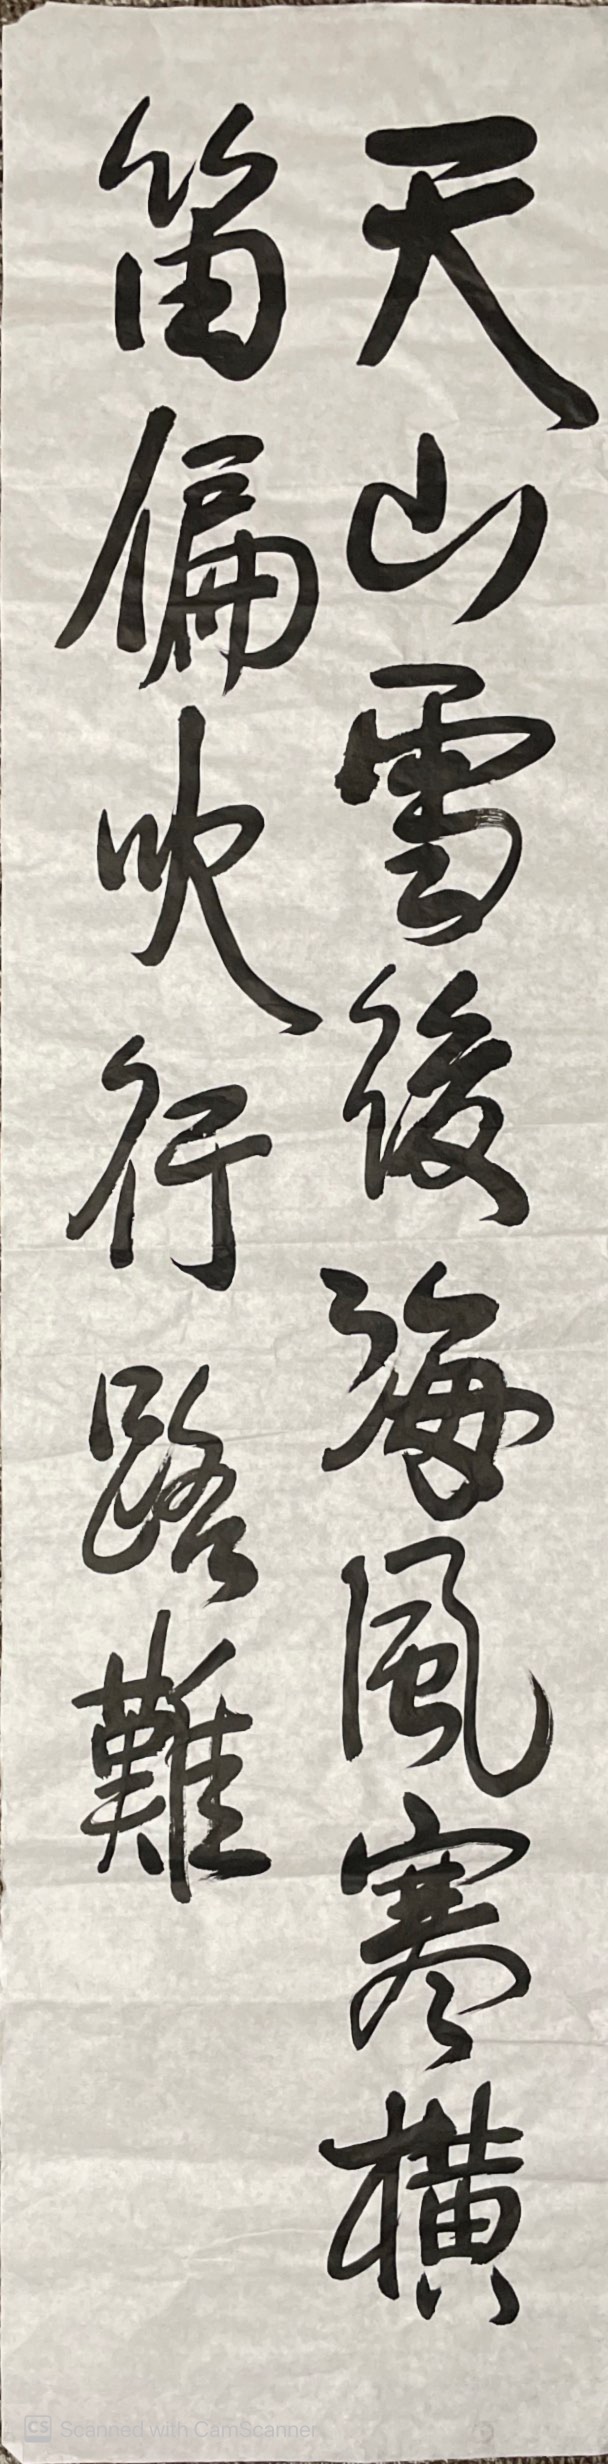 天山雪後海風寒橫
笛偏吹行路難
CS Scanned with CamScanner